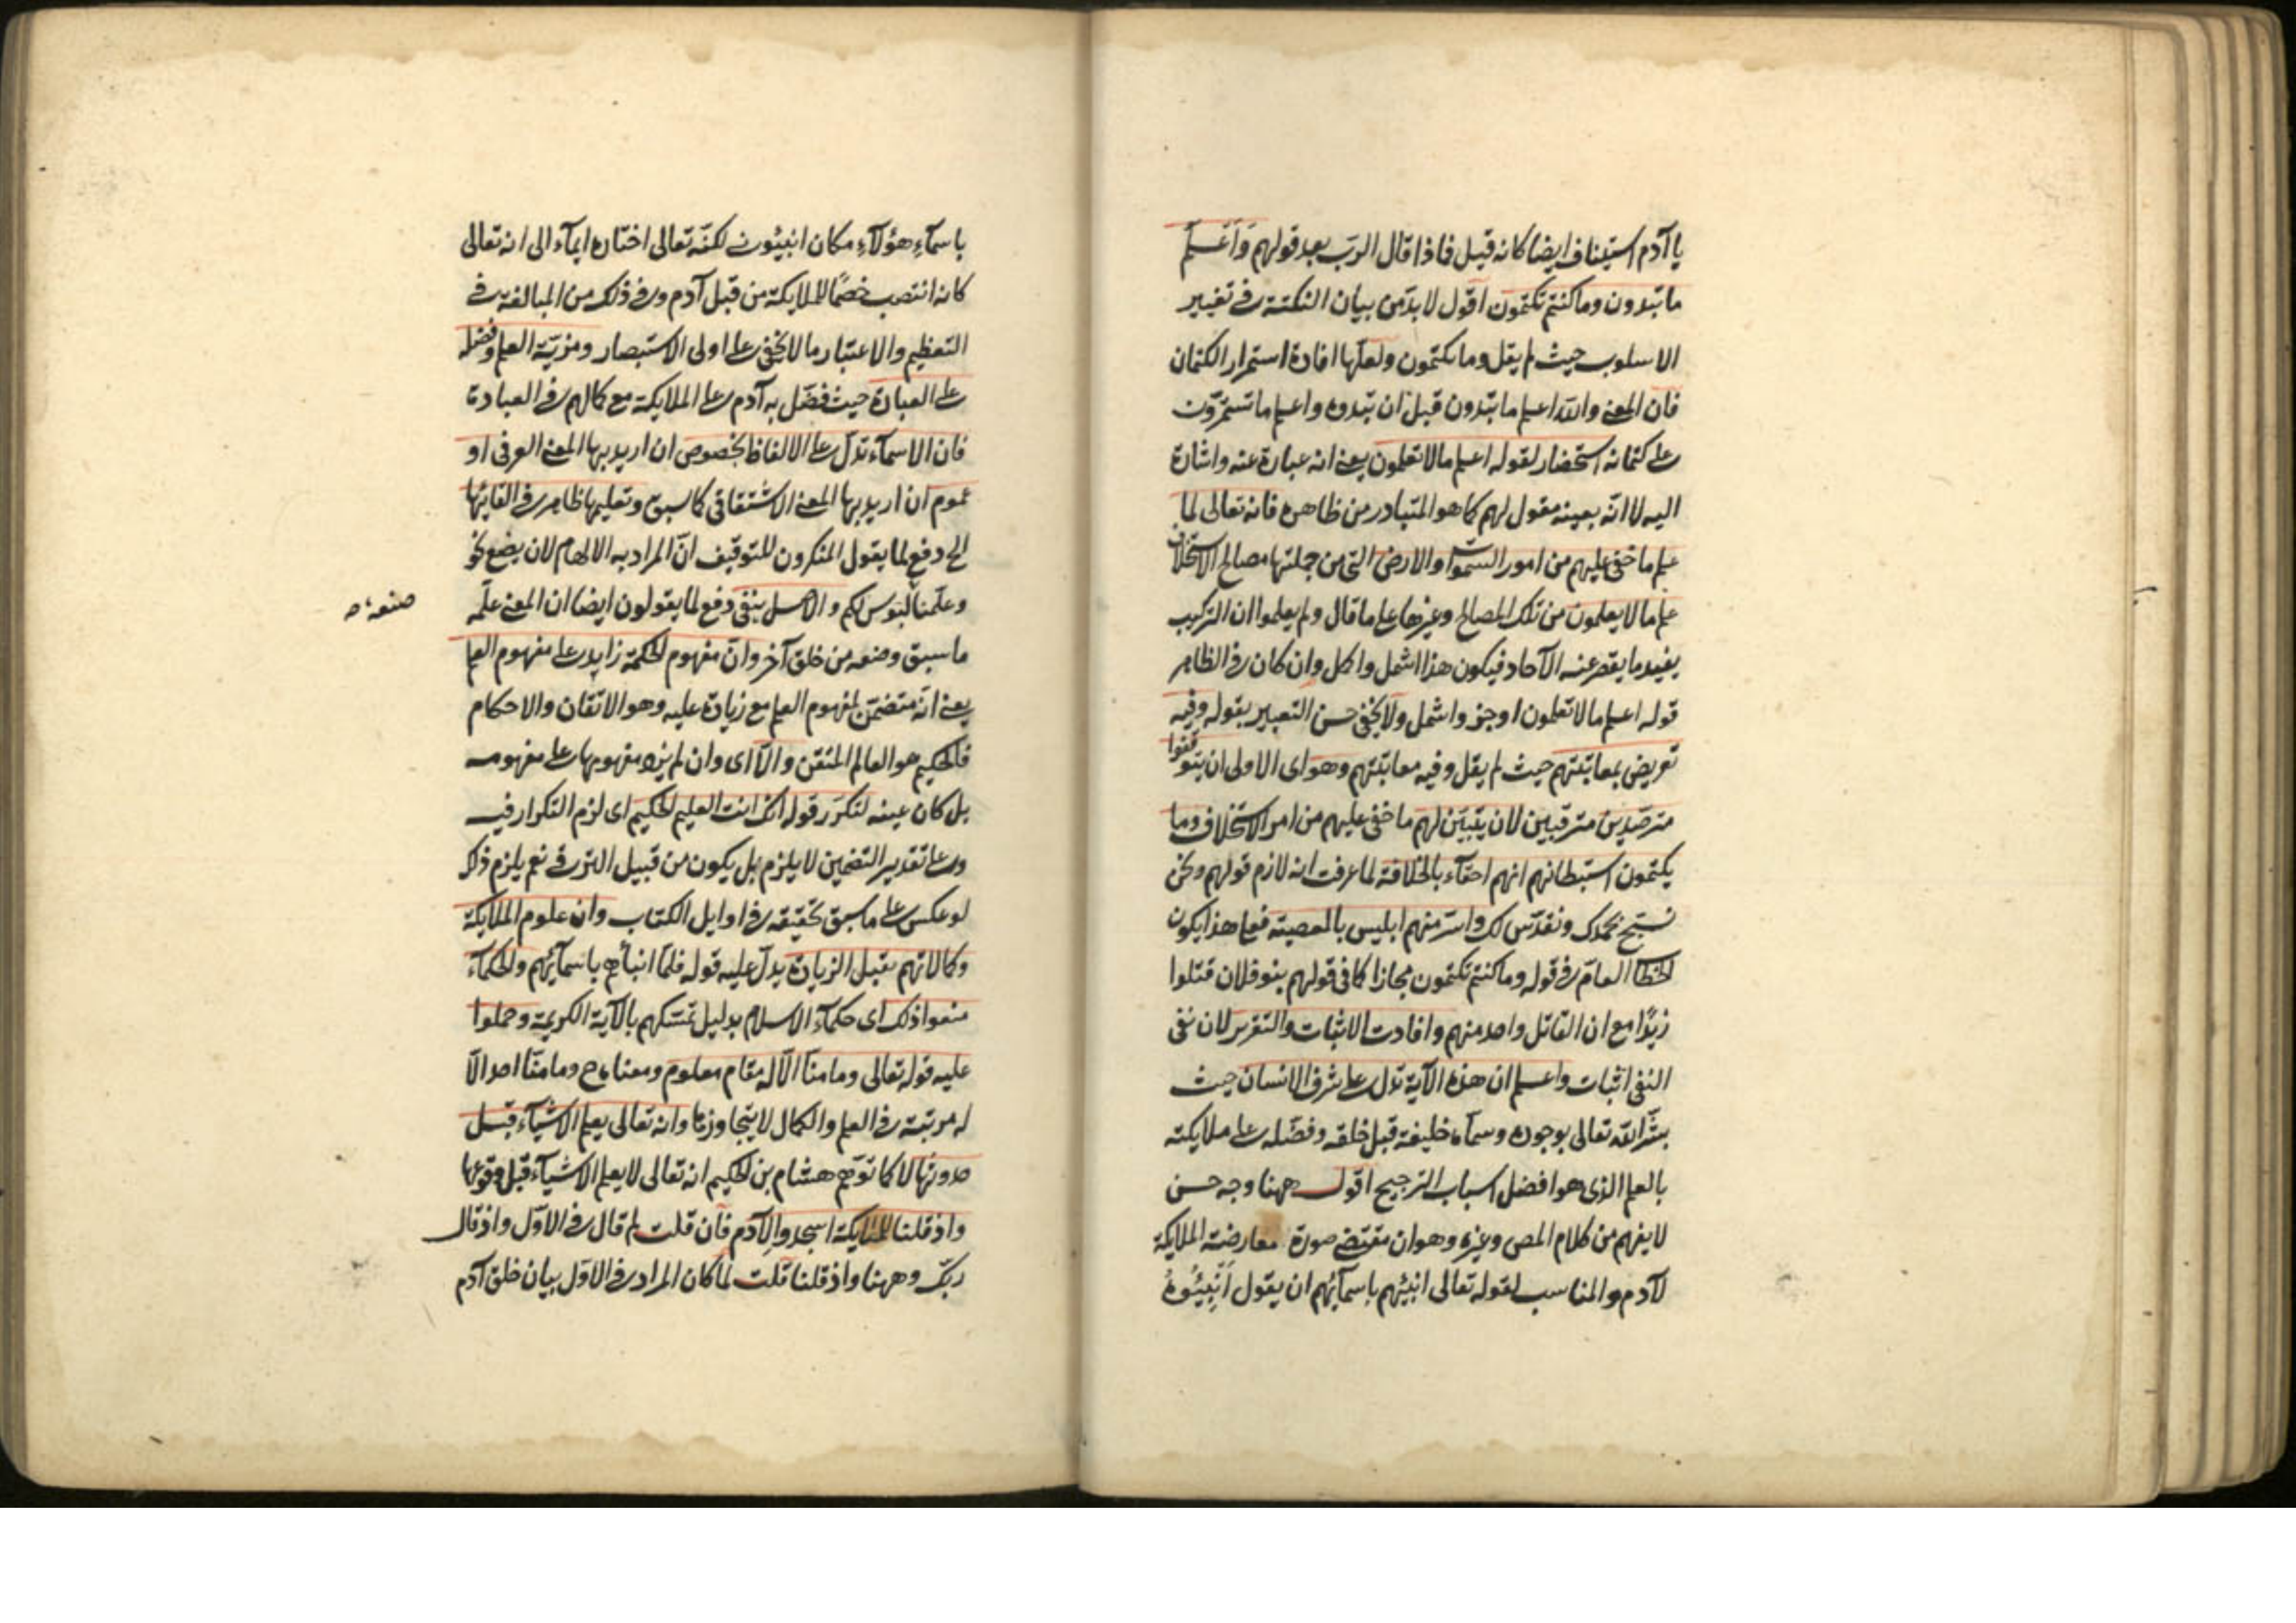 يا آدم استيناف ايضا كانه قيل فماذا قال الرب بعد قولهم وَأَعْلَمُ
ما تبدون وما كنتم تكتمون اقول لا بدّ من بيان النكتة في تغيير
الاسلوب حيث لم يقل وما تكتمون ولعلّها افادة استمرار الكتمان
فان المعنى والله اعلم ما تبدون قبل ان تبدوه واعلم ما تستمرّون
على كتمانه استحضار لقوله اعلم ما لا تعلمون يعني انه عبارة عنه واشارة
اليه لا انّه بعينه مقول لهم كما هو المتبادر من ظاهره فانه تعالى لما
علم ما خفي عليهم من امور السموات والارض التي من جملتها مصالح الاستخلاف
علم ما لا يعلمون من تلك المصالح وغيرها على ما قال ولم يعلموا ان التركيب
يفيد ما يقصر عنه الآحاد فيكون هذا اشمل واكمل وان كان في الظاهر
قوله اعلم ما لا تعلمون اوجز واشمل ولا يخفى حسن التعبير بقوله وفيه
تعريض بمعاتبتهم حيث لم يقل وفيه معاتبتهم وهو اى الاولى ان يتوقفوا
مترصّدين مترقبين لان يتبيّن لهم ما خفي عليهم من امر الاستخلاف وما
يكتمون استبطانهم انهم احقّاء بالخلافة لما عرفت انه لازم قولهم ونحن
نسبّح بحمدك ونقدّس لك واسرّ منهم ابليس بالمعصية فعلى هذا يكون
الخطا العام في قوله وما كنتم تكتمون مجازا كما في قولهم بنو فلان قتلوا
زيدًا مع ان القاتل واحد منهم وافادت الاثبات والتقرير لان نفي
النفي اثبات واعلم ان هذه الآية تدل على شرف الانسان حيث
بشّر الله تعالى بوجوده وسمآه خليفة قبل خلقه وفضّله على ملايكته
بالعلم الذي هو افضل اسباب الترجيح اقول ههنا وجه حسن
لا يفهم من كلام المص وغيره وهو ان مقتضى صورة معارضة الملايكة
لآدم والمناسب لقوله تعالى انبئهم باسمآئهم ان يقول أَنْبِئُوهُ
باسمآءِ هؤلآءِ مكان انبئون لكنّه تعالى اختاره ايمآء الى انه تعالى
كانه انتصب خصمًا للملايكة من قبل آدم وفي ذلك من المبالغة في
التعظيم والاعتبار ما لا يخفى على اولى الاستبصار ومزيّة العلم وفضله
على العبادة حيث فضّل به آدم على الملايكة مع كمالهم في العبادة
فان الاسمآء تدل على الالفاظ بخصوص ان اريد بها المعنى العرفي او
عموم ان اريد بها المعنى الاشتقاقي كما سبق وتعليمها ظاهر في القائها
الخ دفع لما يقول المنكرون للتوقيف انّ المراد به الالهام لان يضع نحو
وعلّمناه صنعة لبوس لكم والاصل ينفى دفع لما يقولون ايضا ان المعنى علّمه
ما سبق وضعه من خلق آخر وانّ مفهوم الحكمة زايد على مفهوم العلم
يعني انّه متضمّن لمفهوم العلم مع زيادة عليه وهو الاتقان والاحكام
فالحكيم هو العالم المتقن والّا اى وان لم يزد مفهومها على مفهومه
بل كان عينه لتكرّر قوله انك انت العليم الحكيم اى لزم التكرار فيه
وعلى تقدير التضمين لا يلزم بل يكون من قبيل الترقى نعم يلزم ذلك
لو عكس على ما سبق تحقيقه في اوايل الكتاب وان علوم الملايكة
وكمالاتهم تقبل الزيادة يدلّ عليه قوله فلمّا انبأهم باسمآئهم والحكمآء
منعوا ذلك اى حكمآء الاسلام بدليل تمسّكهم بالآية الكريمة وحملوا
عليه قوله تعالى وما منّا الّا له مقام معلوم ومعناه ح وما منّا احد الّا
له مرتبة في العلم والكمال لا يتجاوزها وانه تعالى يعلم الاشيآء قبل
حدوثها لا كما توهّم هشام بن الحكيم انه تعالى لا يعلم الاشيآء قبل وقوعها
واذ قلنا للملايكة اسجدوا لآدم فان قلت لم قال في الاوّل واذ قال
ربّك وههنا واذ قلنا قلت لما كان المراد في الاوّل بيان خلق آدم